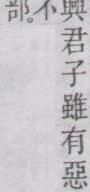 興君子雖有惡
不
部。